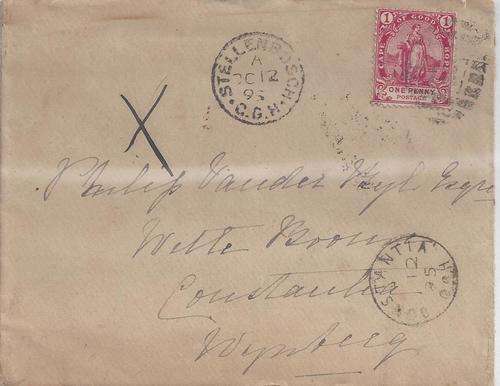 1 CAPE OF GOOD HOPE 1
ONE PENNY
POSTAGE
STELLENBOSCH
A
OC 12
95
C.G.H.
X
Philip Vander Byl Esqre
Witte Boomen
Constantia
Wynberg
CONSTANTIA
12
95